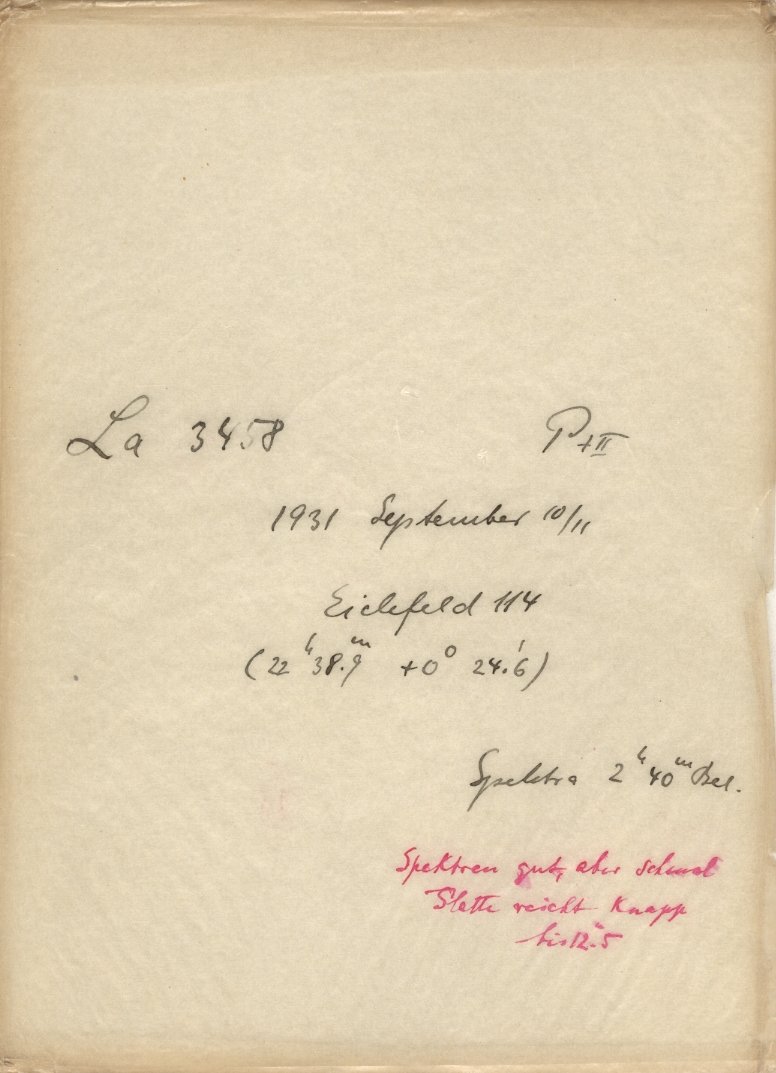 La 3458 P+II
1931 September 10/11
Eichfeld 114
(22ʰ38.9ᵐ +0° 24.'6)
Spektra 2ʰ40ᵐ Bel.
Spektren gut, aber schmal
Platte reicht knapp
bis 12.ᵐ5